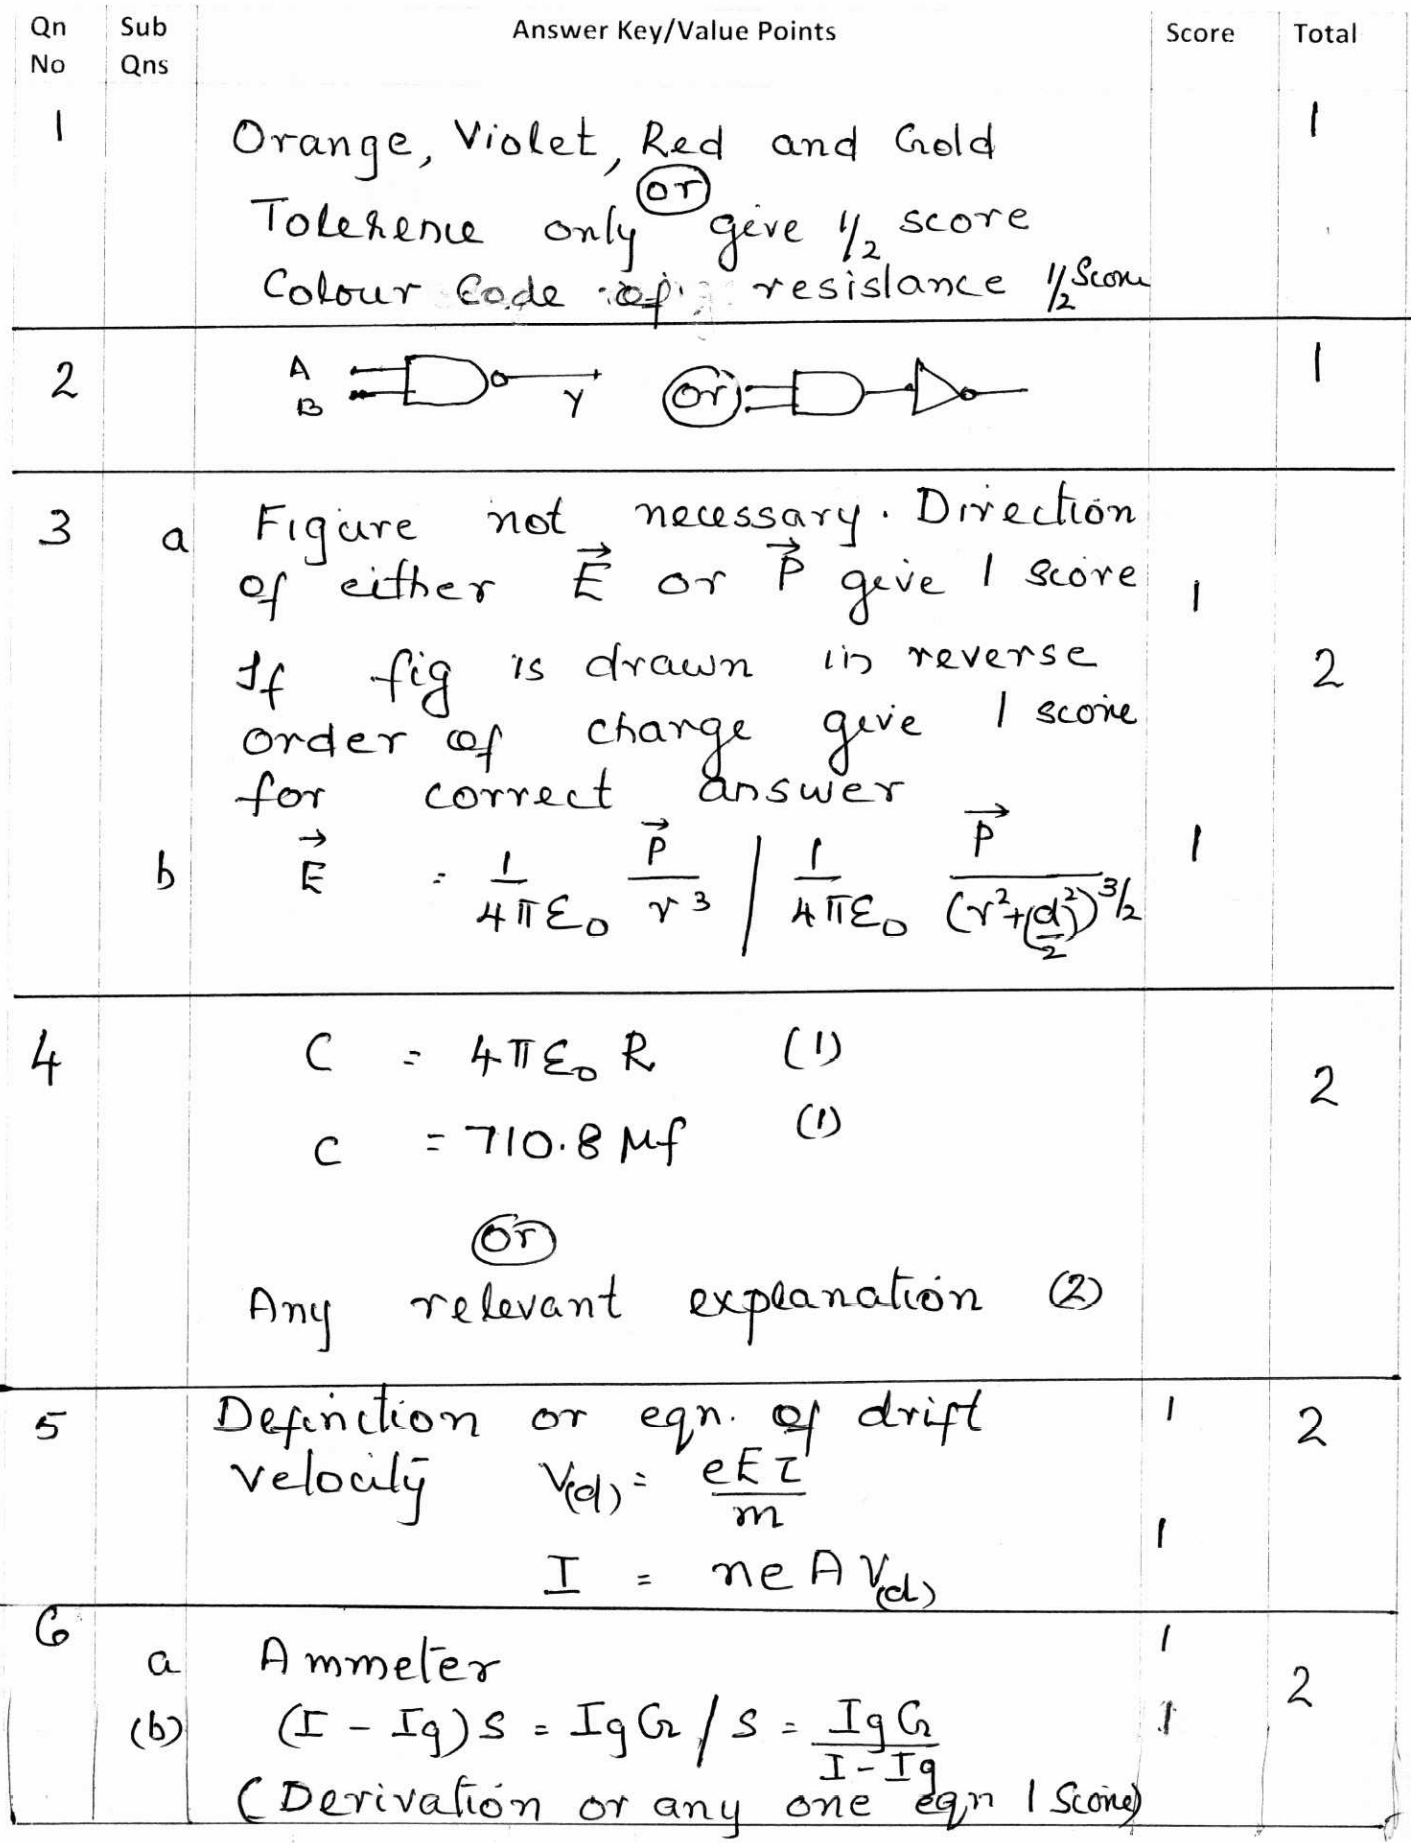 Qn No Sub Qns Answer Key/Value Points Score Total
1 Orange, Violet, Red and Gold 1
(or)
Tolerence only give 1/2 score
Colour Code of resistance 1/2 Score
2 A B Y (or) 1
3 a Figure not necessary. Direction
of either E⃗ or P⃗ give 1 score 1
If fig is drawn in reverse 2
order of change give 1 score
for correct answer
b E⃗ = 1/4πε₀ P⃗/r³ / 1/4πε₀ P⃗/(r²+(d/2)²)^3/2 1
4 C = 4πε₀ R (1) 2
C = 710.8 μf (1)
(or)
Any relevant explanation (2)
5 Definition or eqn. of drift 1 2
velocity V(d) = eEτ/m
I = neAV(d) 1
6 a Ammeter 1 2
(b) (I - Ig)S = IgG / S = IgG/I-Ig 1
(Derivation or any one eqn 1 Score)